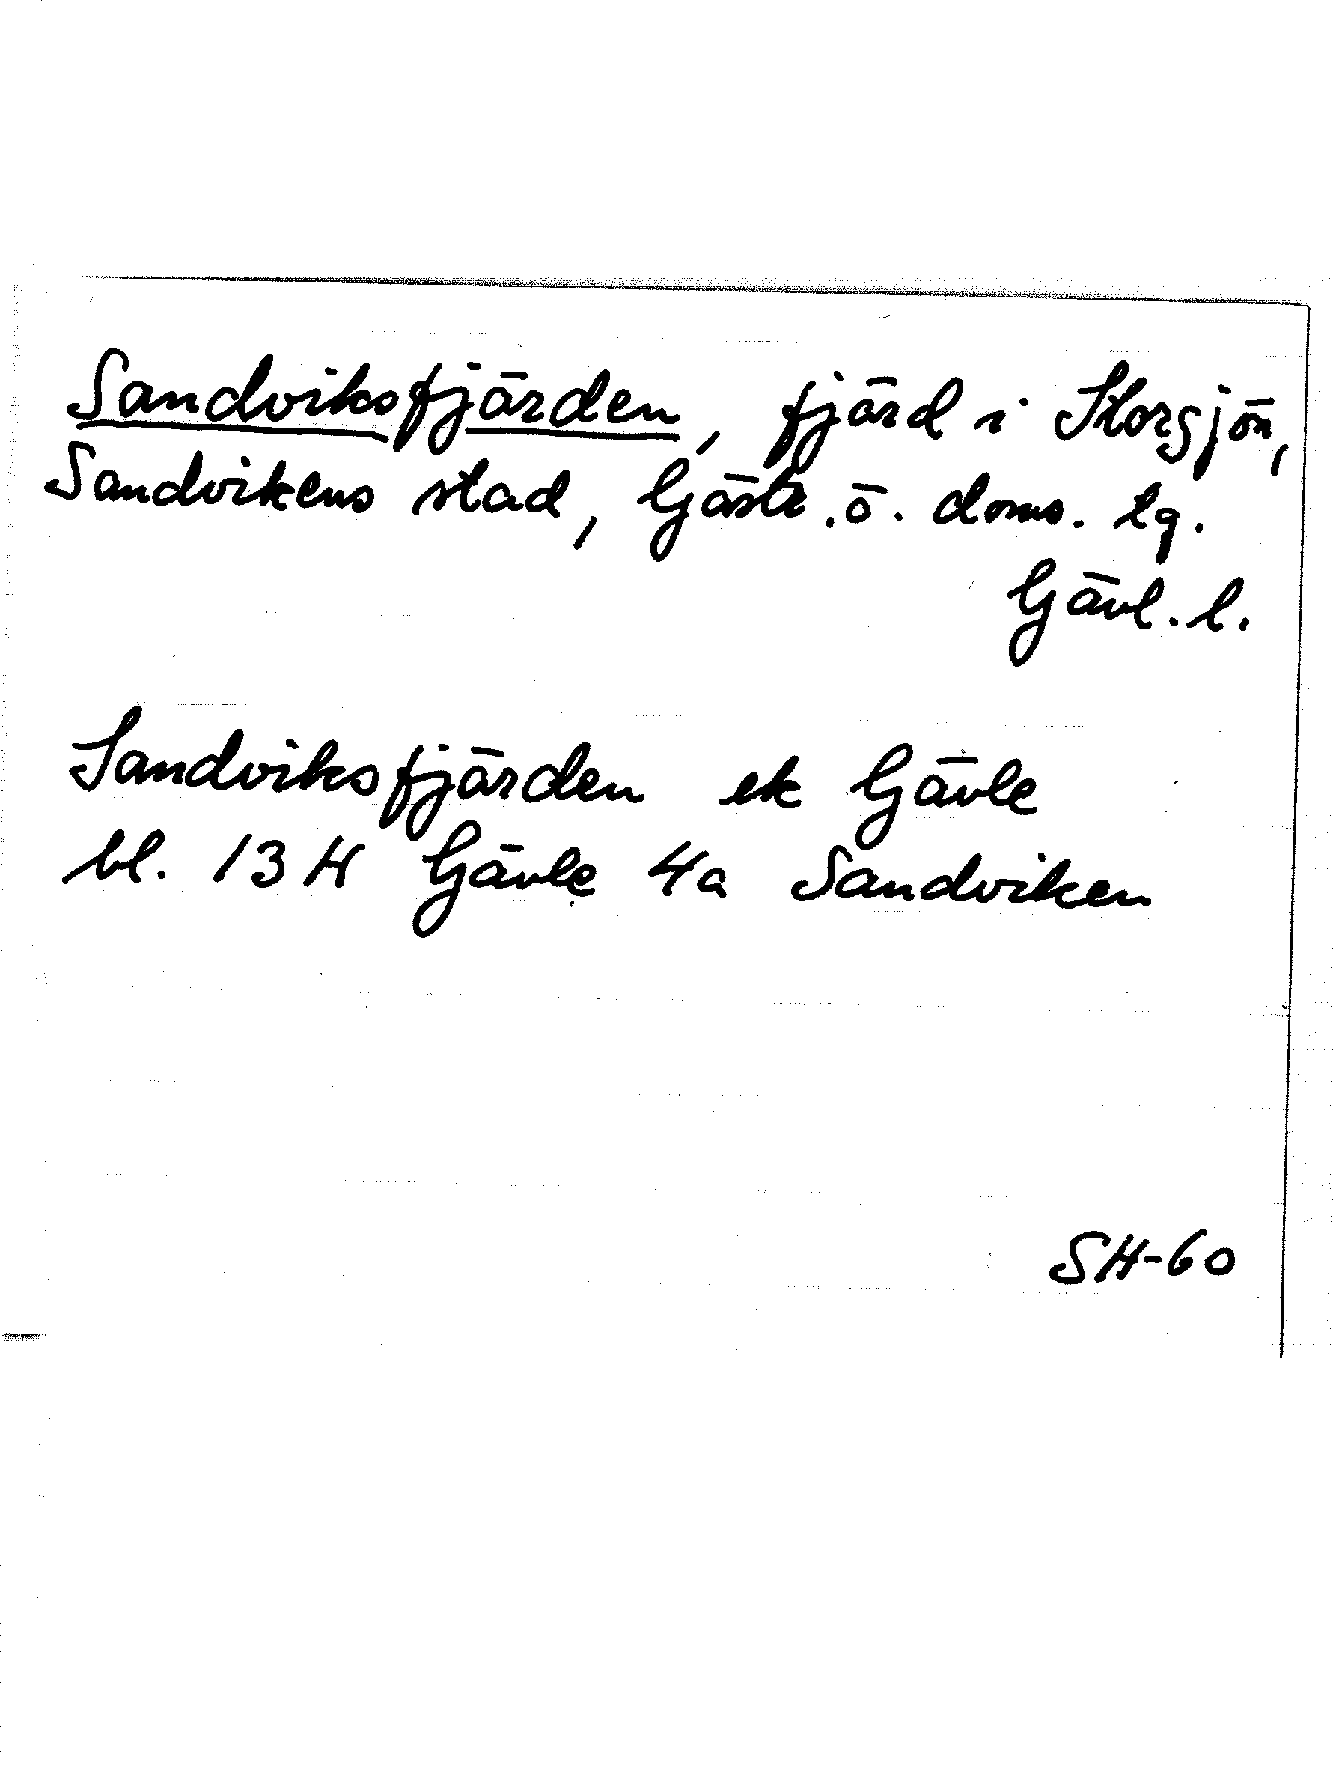 Sandviksfjärden, fjärd i Storsjön,
Sandvikens stad, Gästr. ö. doms. tg.
Gävl. l.
Sandviksfjärden ek Gävle
bl. 13 H Gävle 4a Sandviken
SH-60